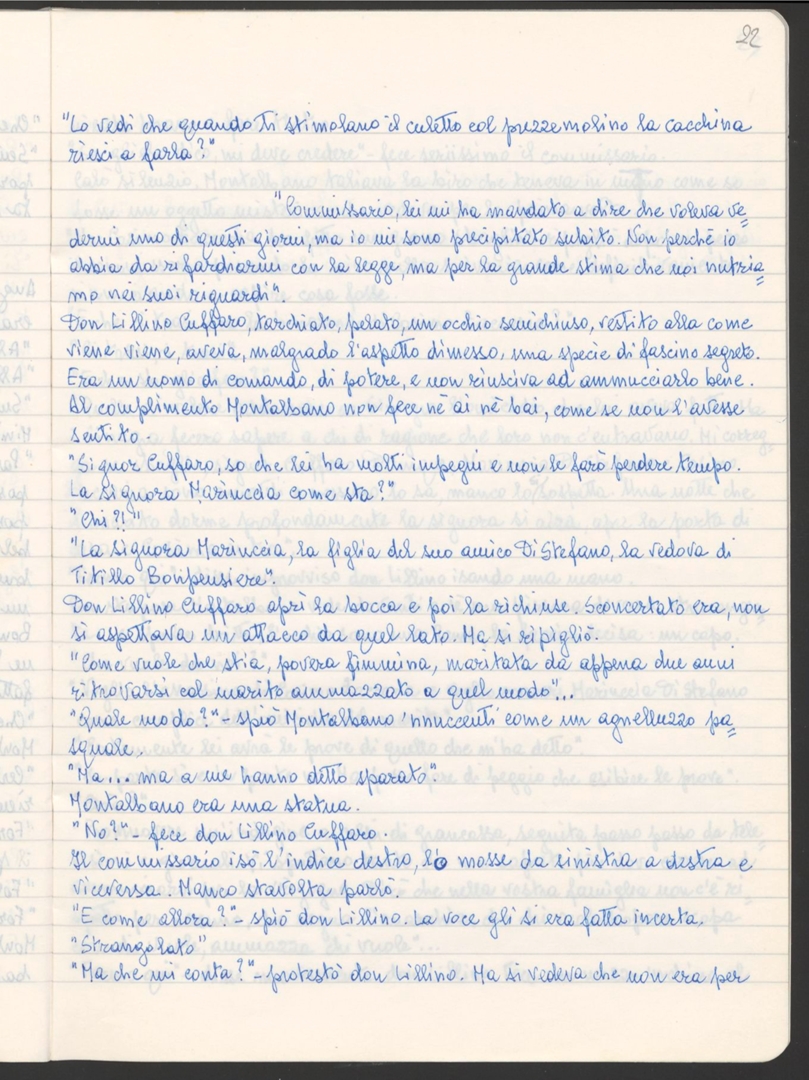 22
"Lo vedi che quando ti stimolano il culetto col puzzemolino la cacchina
riesci a farla?"
"Commissario, lei mi ha mandato a dire che voleva ve=
dermi uno di questi giorni, ma io mi sono precipitato subito. Non perché io
abbia da rifardiarmi con la legge, ma per la grande stima che noi nutria=
mo nei suoi riguardi".
Don Lillino Cuffaro, tarchiato, pelato, un occhio semichiuso, vestito alla come
viene viene, aveva, malgrado l'aspetto dimesso, una specie di fascino segreto.
Era un uomo di comando, di potere, e non riusciva ad ammucciarlo bene.
Al complimento Montalbano non fece né ai né bai, come se non l'avesse
sentito.
"Signor Cuffaro, so che lei ha molti impegni e non le farò perdere tempo.
La signora Mariuccia come sta?"
"Chi?!"
"La signora Mariuccia, la figlia del suo amico Di Stefano, la vedova di
Titillo Bonpensiere".
Don Lillino Cuffaro aprì la bocca e poi la richiuse. Sconcertato era, non
si aspettava un attacco da quel lato. Ma si ripigliò.
"Come vuole che stia, povera fimmina, maritata da appena due anni
ritrovarsi col marito ammazzato a quel modo"...
"Quale modo?" - spiò Montalbano 'nnuccenti come un agnelluzzo pa=
squale.
"Ma... ma a me hanno detto sparato".
Montalbano era una statua.
"No?" - fece don Lillino Cuffaro.
Il commissario isò l'indice destro, lo mosse da sinistra a destra e
viceversa. Manco stavolta parlò.
"E come allora?" - spiò don Lillino. La voce gli si era fatta incerta.
"Strangolato"
"Ma che mi conta?" - protestò don Lillino. Ma si vedeva che non era per